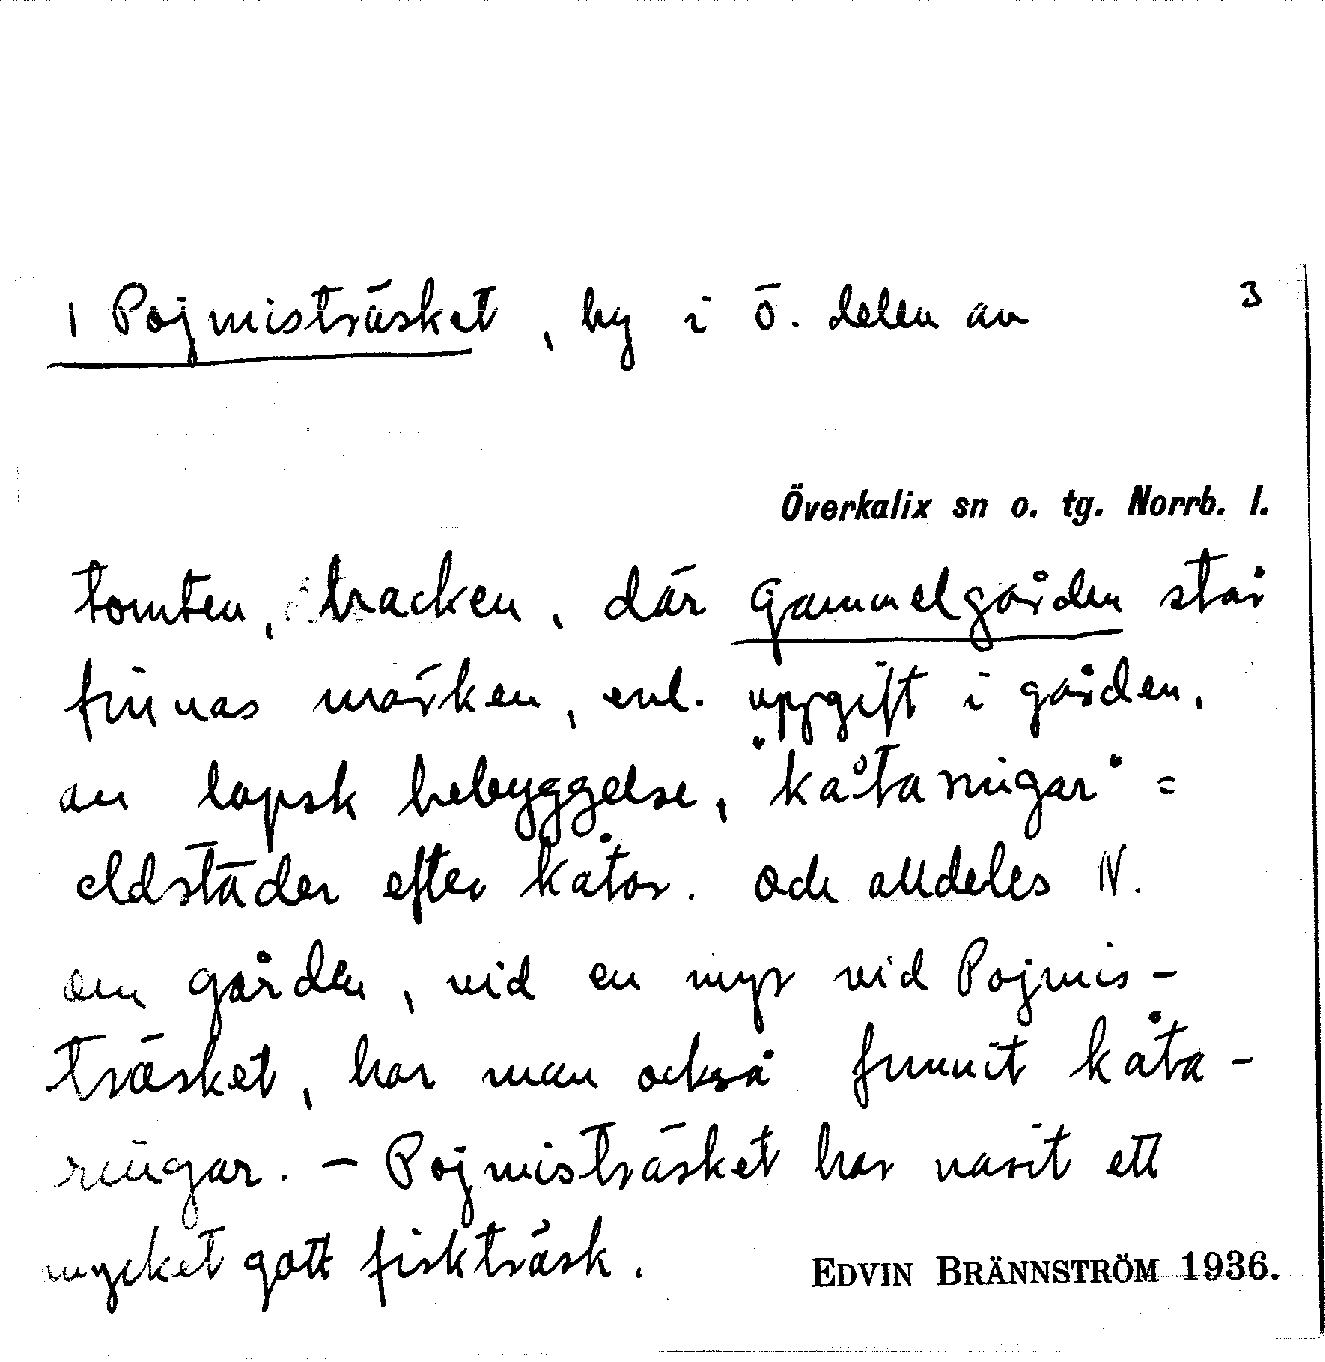 1 Pojmisträsket, by i ö. delen av 3
Överkalix sn o. tg. Norrb. l.
tomten, backen, där Gammelgården står
finnas märken, enl. uppgift i gården,
av lapsk bebyggelse, "kåtaringar" =
eldstäder efter kåtor. Och alldeles N.
om gården, vid en myr vid Pojmis-
träsket, har man också funnit kåta-
ringar. - Pojmisträsket har varit ett
mycket gott fiskträsk.
EDVIN BRÄNNSTRÖM 1936.